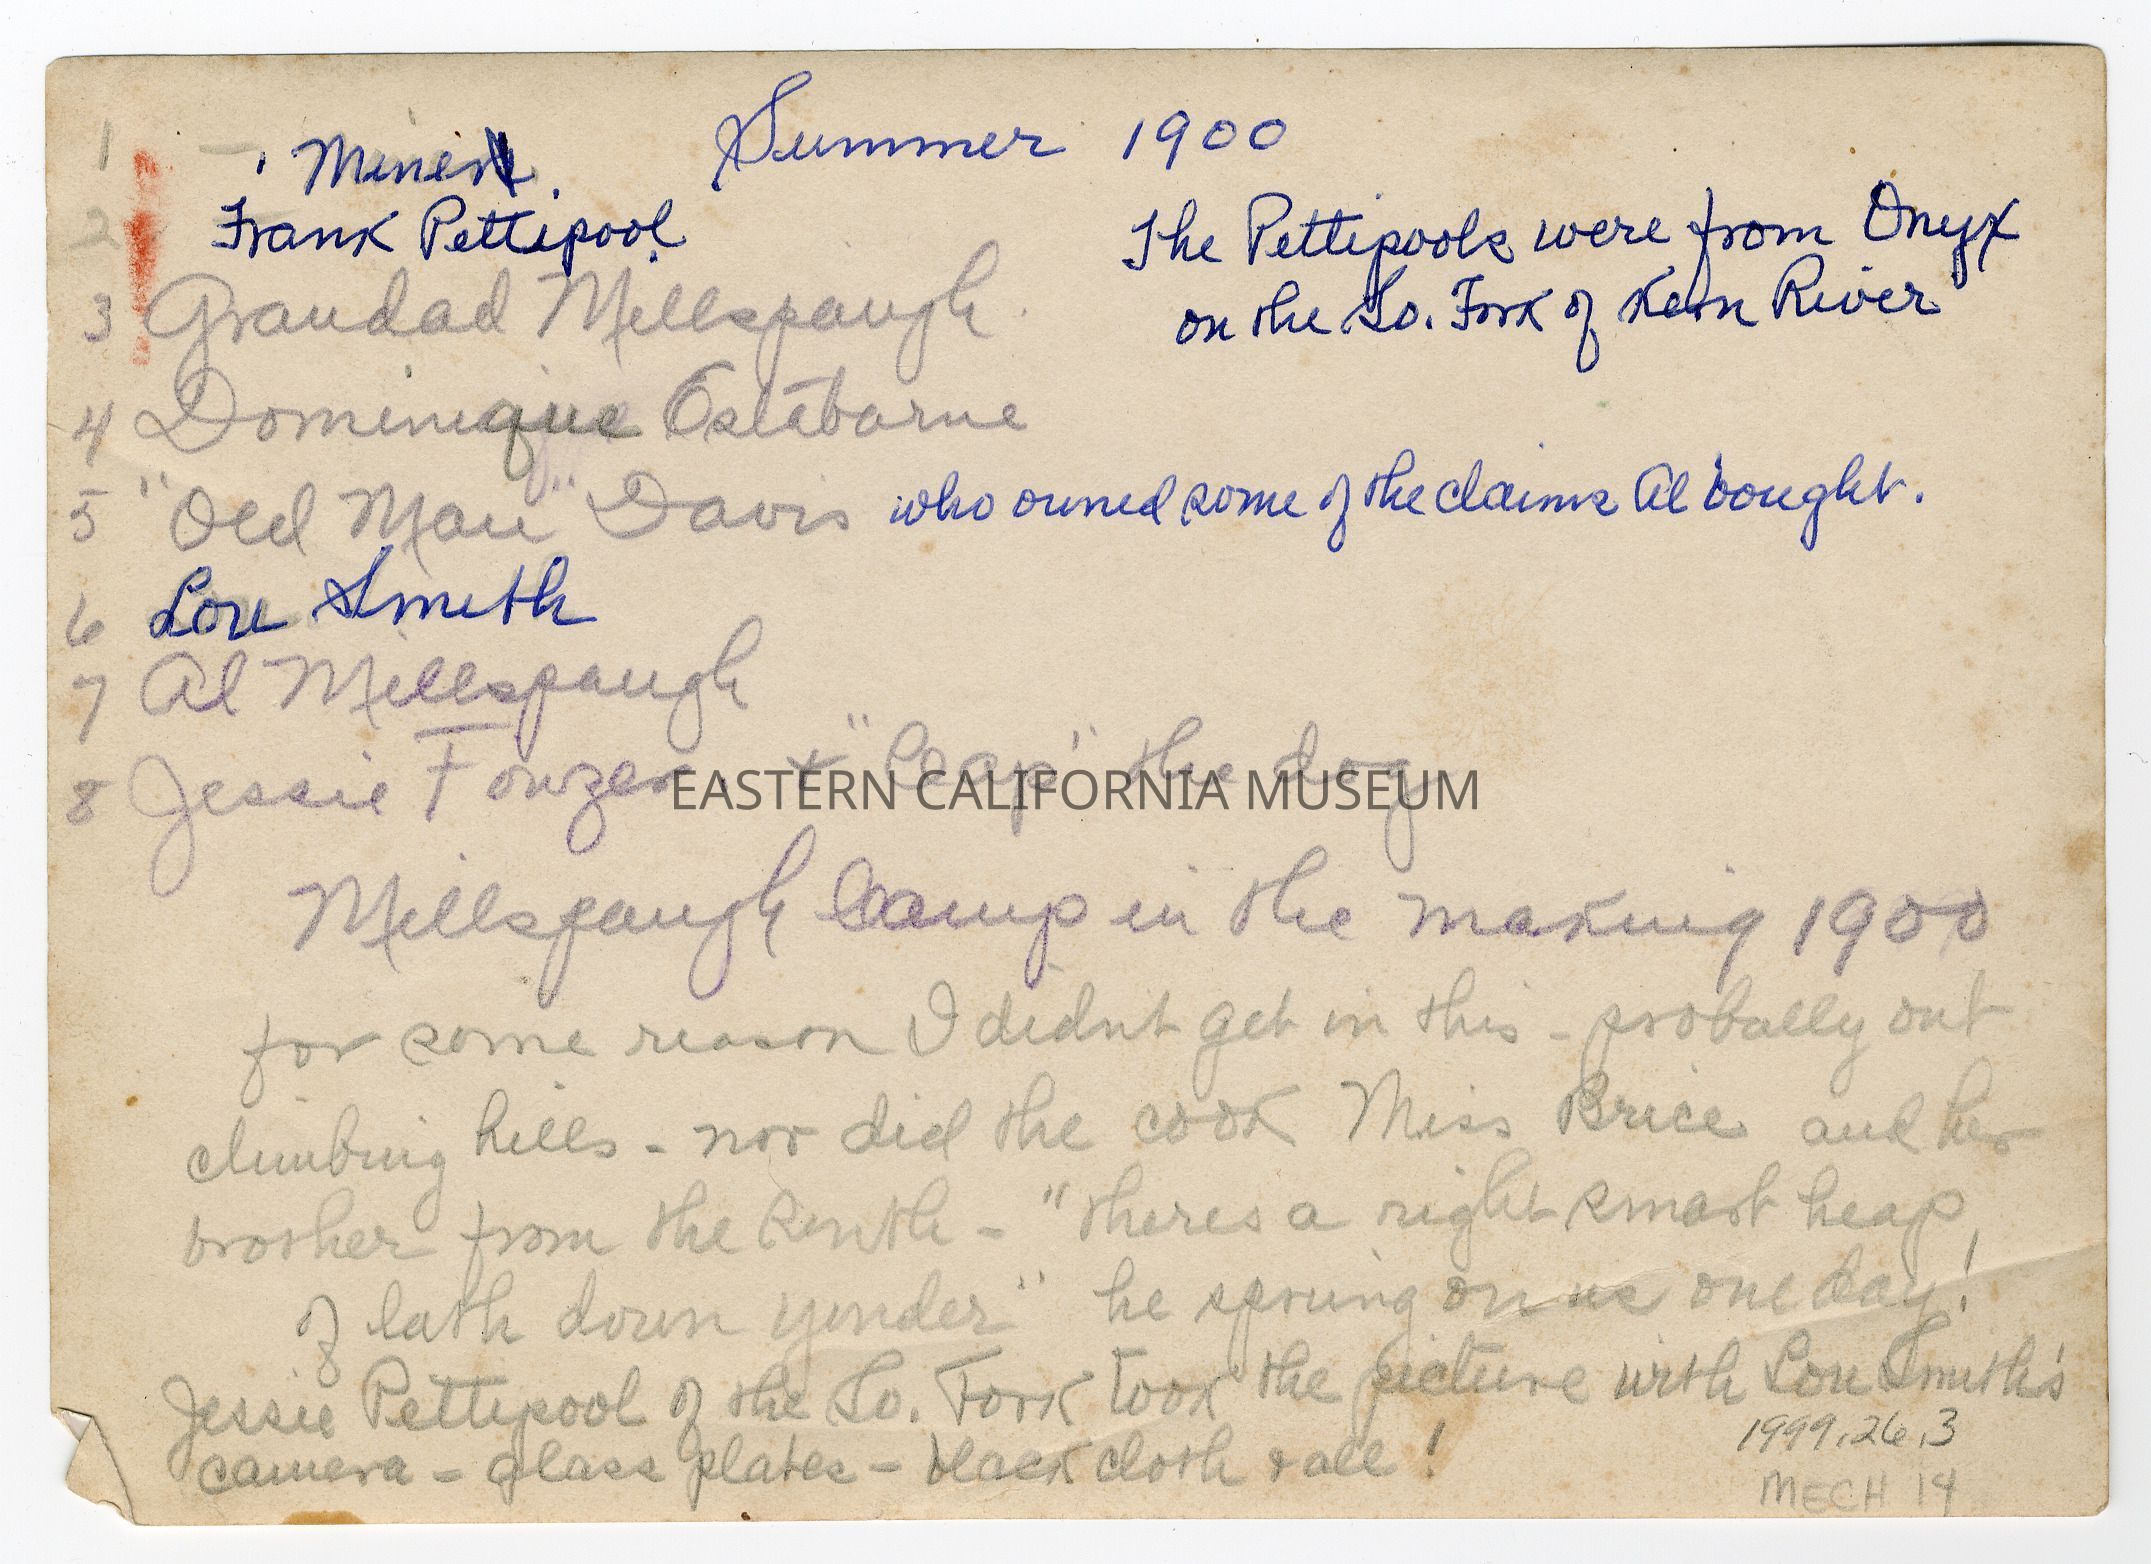 Summer 1900
1 Miner.
2 Frank Pettipool.
The Pettipools were from Onyx
on the So. Fork of Kern River
3 Grandad Millspaugh.
4 Dominique Ostabarne
5 "Old Man" Davis who owned some of the claims Al bought.
6 Lou Smith
7 Al Millspaugh
8 Jessie Fowzer + "Cap" the dog
EASTERN CALIFORNIA MUSEUM
Millspaugh Camp in the making 1900
for some reason I didn't get in this - probally out
climbing hills - nor did the cook Miss Brice and her
brother from the South - "theres a right smart heap
of lath down yonder" he sprung on us one day!
Jessie Pettipool of the So. Fork took the picture with Lou Smith's
camera - glass plates - black cloth & all!
1999.26.3
MECH 14